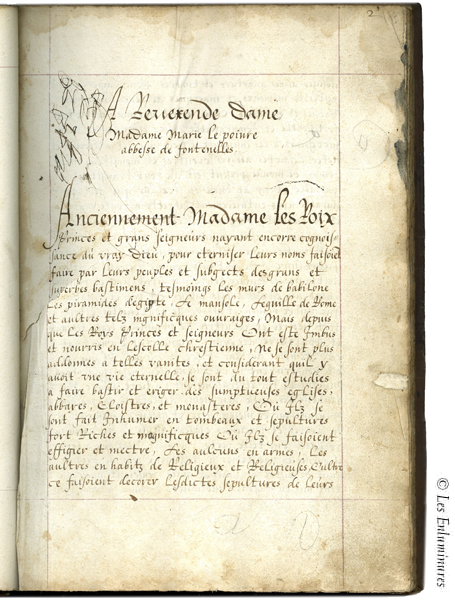 2
A Reverende Dame
Madame Marie le poivre
abbesse de fontenelles.
Anciennement Madame les Roix
Princes et grans seigneurs nayant encorre cognois-
sance du vray Dieu, pour eterniser leurs noms faisoient
faire par leurs peuples et subgects des grans et
superbes bastimens, tesmoings les murs de babilone
Les piramides degipte, le mausole, leguille de Rome
et aultres telz mgnificques ouvraiges, Mais depuis
que les Roys Princes et seigneurs Ont este Imbus
et nourris en lescolle chrestienne, Ne se sont plus
addonnes a telles vanites, et considerant quil y
avoit vne vie eternelle, se sont du tout estudies
a faire bastir et eriger des sumptueuses eglises,
abbayes, Cloistres, et monasteres, Où Ilz se
sont fait Inhumer en tombeaux et sepultures
fort Riches et magnificques Où Ilz se faisoient
effigier et mectre, Les aulcuns en armes, Les
aultres en habitz de Religieux et Religieuses, Oultre
ce faisoient decorer lesdictes sepultures de leurs
© Les Enluminures